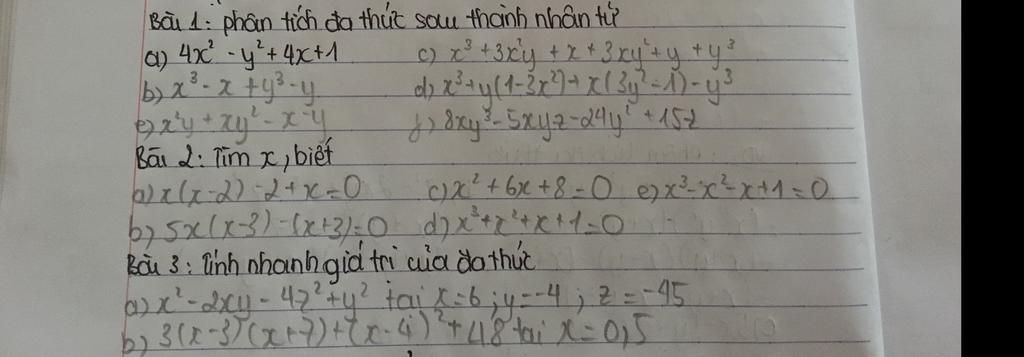 Bài 1: phân tích đa thức sau thành nhân tử
a) 4x² - y² + 4x + 1 c) x³ + 3x²y + x + 3xy² + y + y³
b) x³ - x + y³ - y d) x³ + y(1 - 3x²) + x(3y² - 1) - y³
e) x²y + xy² - x - y f) 8xy³ - 5xyz - 24y² + 15z
Bài 2: Tìm x, biết
a) x(x-2) - 2 + x = 0 c) x² + 6x + 8 = 0 e) x³ - x² - x + 1 = 0
b) 5x(x-3) - (x+3) = 0 d) x³ + x² + x + 1 = 0
Bài 3: Tính nhanh giá trị của đa thức
a) x² - 2xy - 4z² + y² tại x = 6; y = -4; z = -45
b) 3(x-3)(x+7) + (x-4)² + 48 tại x = 0,5